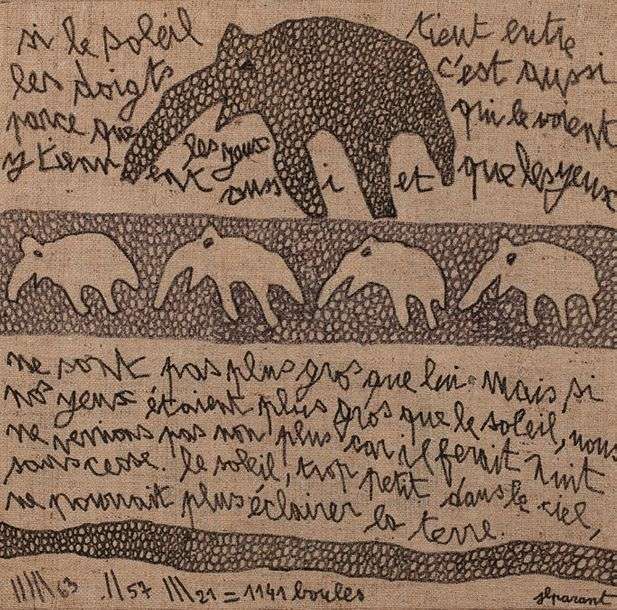 si le soleil tient entre
les doigts c'est aussi
parce que les yeux qui le voient
y tiennent aussi et que les yeux
ne sont pas plus gros que lui. mais si
nos yeux étaient plus gros que le soleil, nous
ne verrions pas non plus car il ferait nuit
sans cesse. le soleil, trop petit dans le ciel,
ne pourrait plus éclairer la terre.
63 57 21 = 1141 boules
jlparant